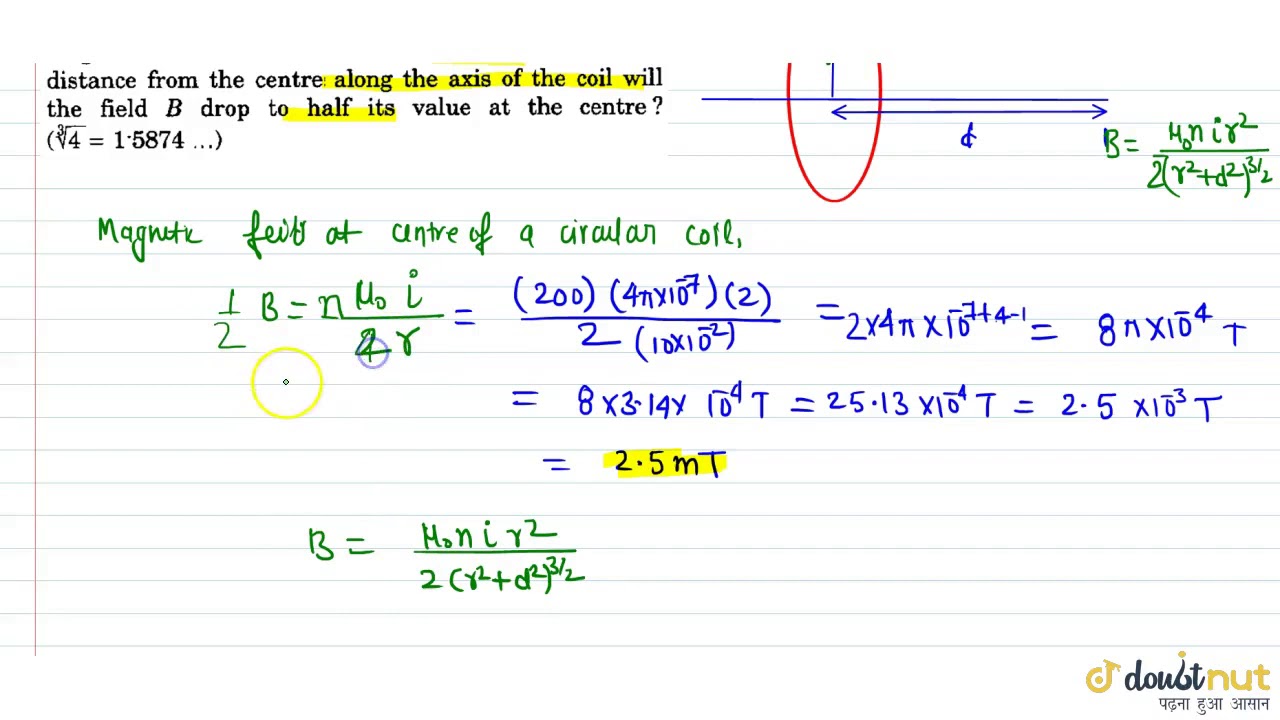 distance from the centre along the axis of the coil will
the field B drop to half its value at the centre?
(∛4 = 1·5874 ...)
d
B = μ₀nir² / 2(r²+d²)^3/2
Magnetic feild at centre of a circular coil,
1/2 B = n μ₀ i / 2 r = (200) (4π×10⁻⁷) (2) / 2 (10×10⁻²) = 2×4π×10⁻⁷⁺⁴⁻¹ = 8π×10⁻⁴ T
= 8×3·14× 10⁻⁴ T = 25·13 ×10⁻⁴ T = 2·5 ×10⁻³ T
= 2·5 mT
B = μ₀nir² / 2(r²+d²)^3/2
doubtnut
पढ़ना हुआ आसान